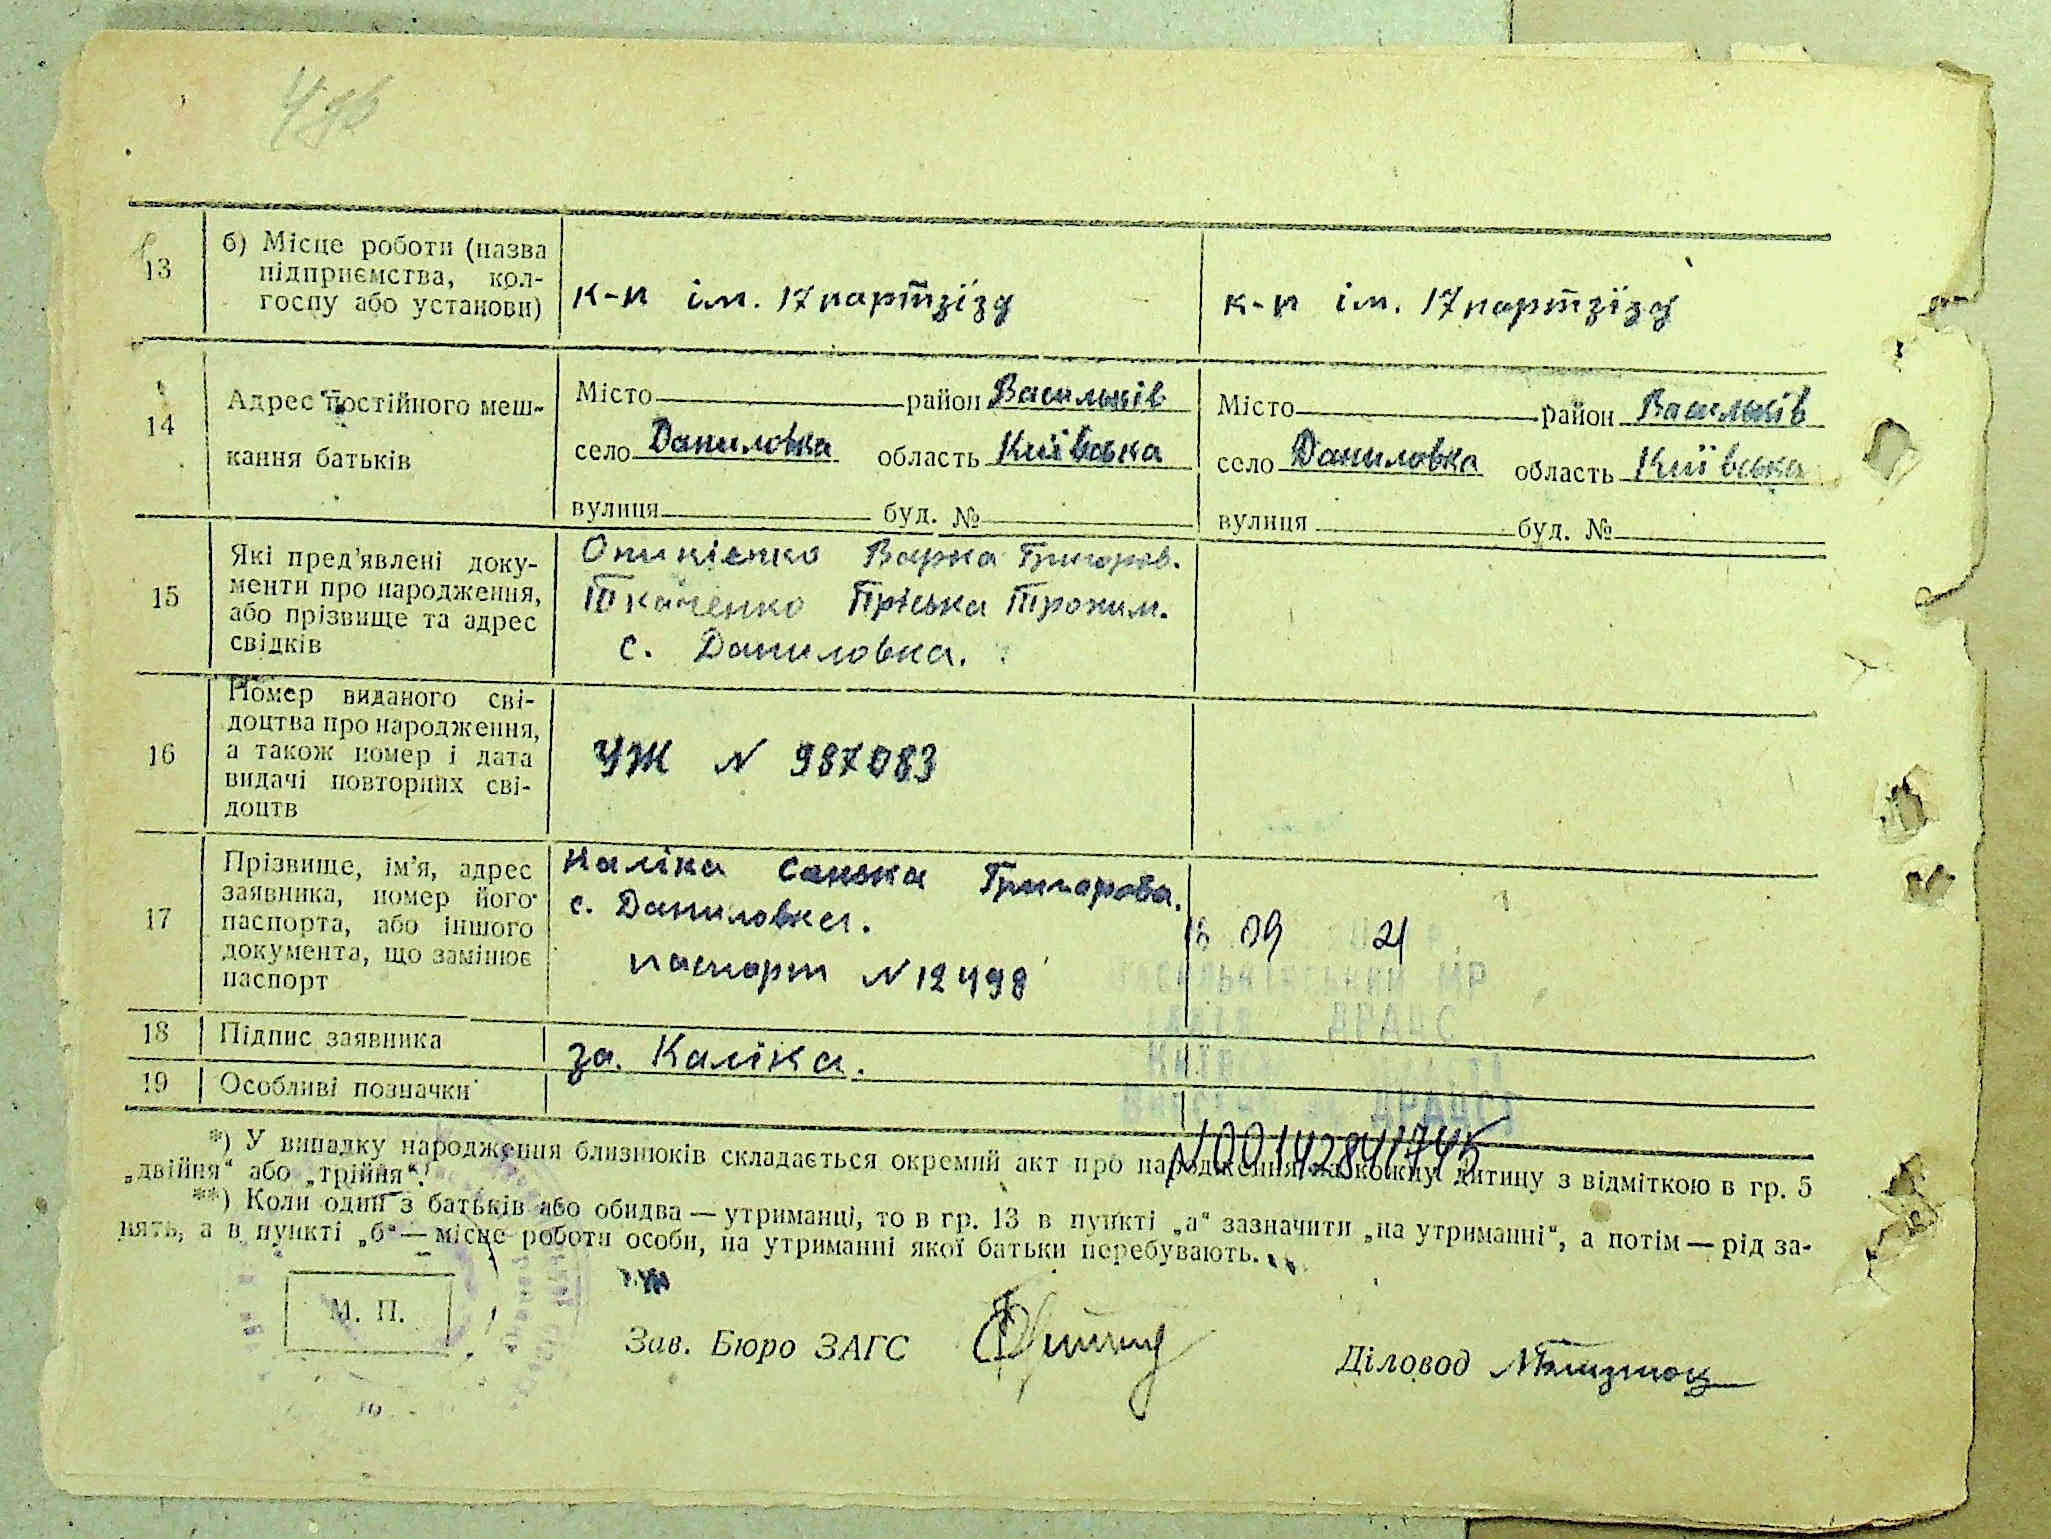 13
б) Місце роботи (назва
підприємства, кол-
госпу або установи)
к-п ім. 17 партзїзд
к-п ім. 17 партзїзд
14
Адрес постійного меш-
кання батьків
Місто район Васильків
село Даниловка область Київська
вулиця буд. №
Місто район Васильків
село Даниловка область Київська
вулиця буд. №
15
Які пред'явлені доку-
менти про народження,
або прізвище та адрес
свідків
Варка Григоров.
Ткаченко Пріська Трохим.
с. Даниловка.
16
Номер виданого сві-
доцтва про народження,
а також номер і дата
видачі повторних сві-
доцтв
УЖ N 987083
17
Прізвище, ім'я, адрес
заявника, номер його
паспорта, або іншого
документа, що замінює
паспорт
Каліка Санька Григорова.
с. Даниловка.
паспорт N 12498
09 21
МР
ДРАЦС
18
Підпис заявника
за. Каліка.
19
Особливі позначки
ДРАЦСГ
N00142841745
*) У випадку народження близнюків складається окремий акт про народження на кожну дитину з відміткою в гр. 5
„двійня“ або „трійня“.
**) Коли один з батьків або обидва — утриманці, то в гр. 13 в пункті „а“ зазначити „на утриманні“, а потім — рід за-
нять, а в пункті „б“ — місце роботи особи, на утриманні якої батьки перебувають.
М. П.
Зав. Бюро ЗАГС
Діловод